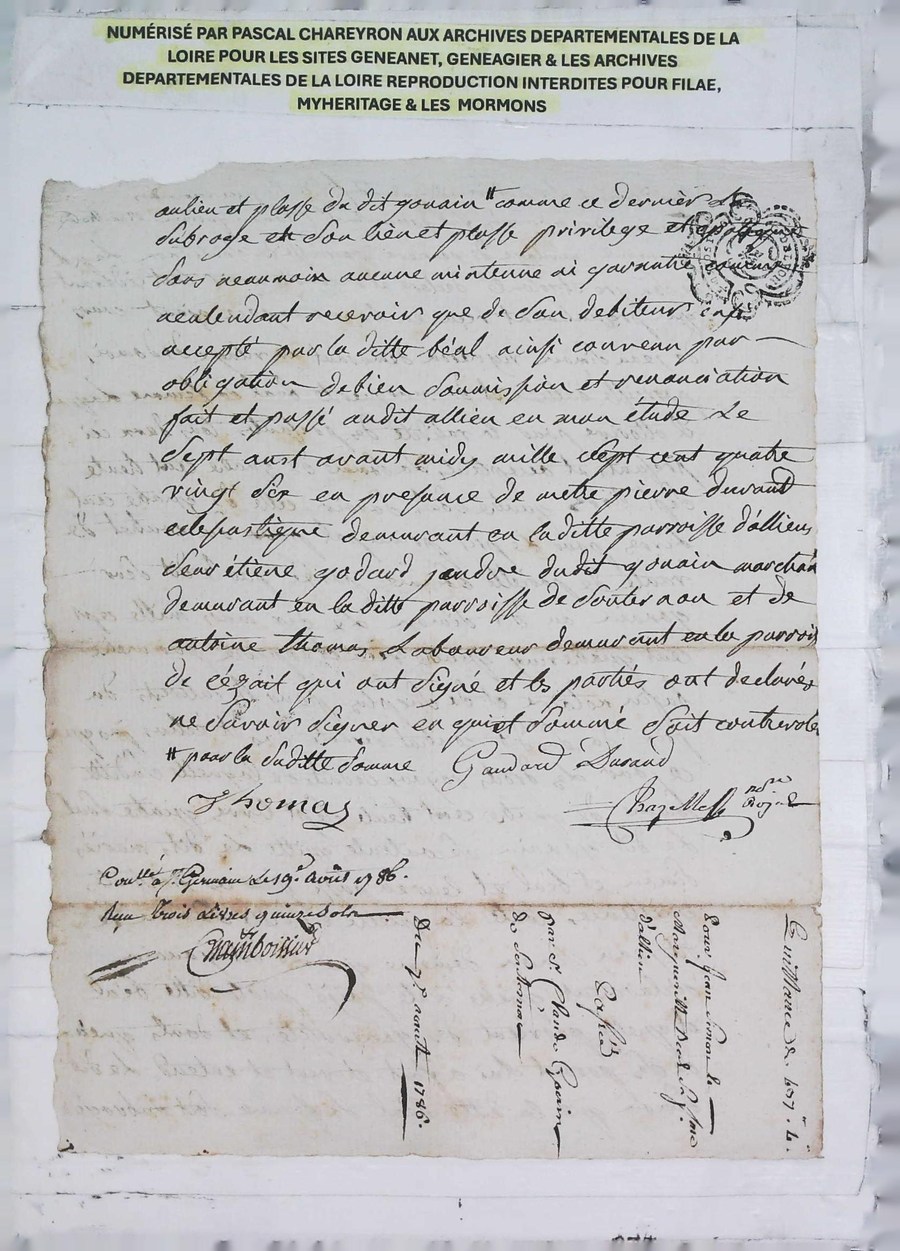 NUMÉRISÉ PAR PASCAL CHAREYRON AUX ARCHIVES DEPARTEMENTALES DE LA
LOIRE POUR LES SITES GENEANET, GENEAGIER & LES ARCHIVES
DEPARTEMENTALES DE LA LOIRE REPRODUCTION INTERDITES POUR FILAE,
MYHERITAGE & LES MORMONS
aulieu et plasse du dit gouain # comme ce dernier
subroge et son lieu et plasse privilege et
sans neanmoin aucune mintenne ni garantie
recevoir que de son debiteur
accepté par la ditte béal ainsi convenu par
obligation debien soumission et renonciation
fait et passé audit allieu en mon étude Le
sept aust avant midy mille sept cent quatre
vingt six en presance de metre pierre durand
demurant en laditte parroisse d'allieu
sieur étiene godard jendre dudit gouain marchan
demurant en la ditte parroisse de souternon et de
antoine thomas Laboureur demurant en la parrois
de cézait qui ont signé et les partiés ont declarés
ne savoir signer enquis et sommé soit controle
# pour la suditte somme Gaudard Durand
Thomas
Chazelles nore Royal
Conllé à St Germain Le 19e août 1786.
Reçu trois Livres quinze sols
Du 7e aoust 1786.
par Sr. Claude Gouin
de Souternon
Cassié
Pour Jean Simon La
Margueritte Beal sa fme
d'allieu
Quittance de 407 #. 4 s.